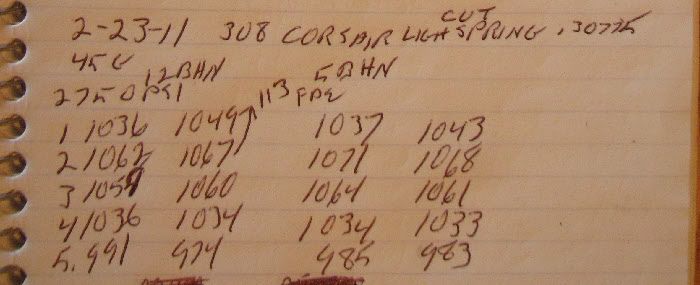 2-23-11 308 CORSAIR LIGH CUT SPRING .30775
45G 12BHN 5BHN
2750 PSI 113 FPE
1 1036 1049 1037 1043
2 1062 1067 1071 1068
3 1059 1060 1064 1061
4 1036 1034 1034 1033
5. 991 974 985 983